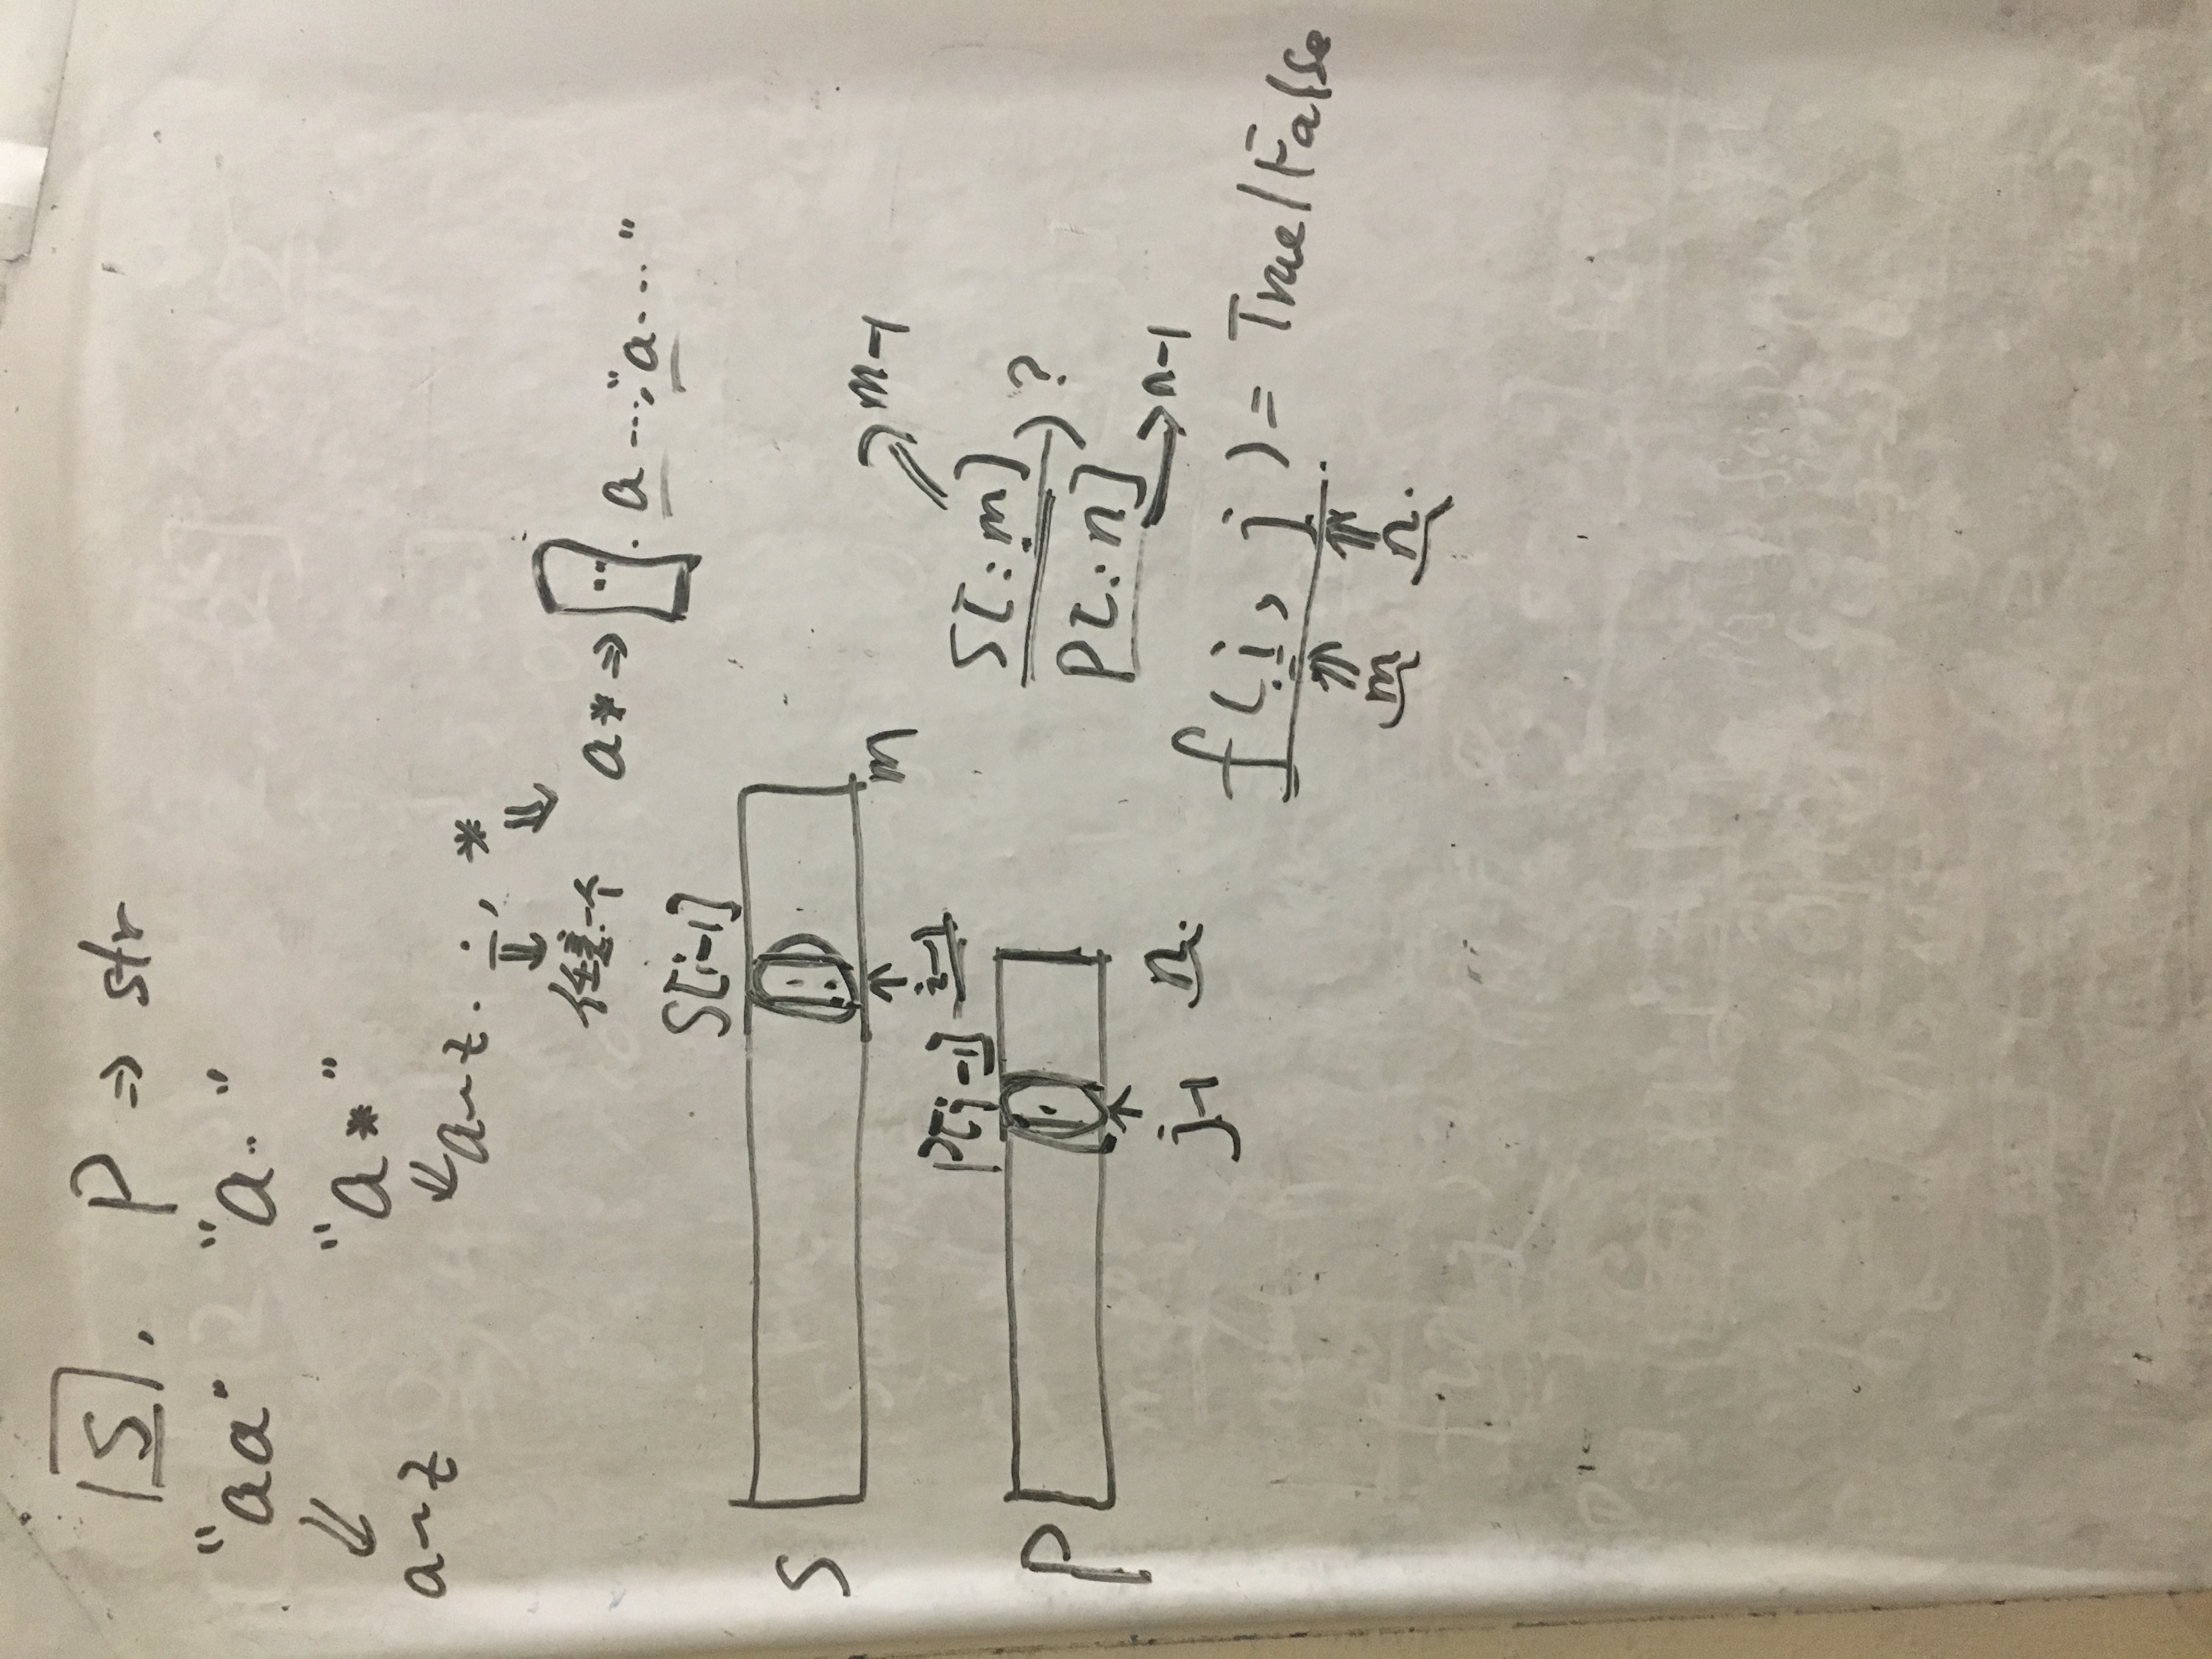 S. P ⇒ str
"aa" "a.."
"a*"
a~z
a~z. ., *
任意一个
a* ⇒ "". a ...; "a...."
S[i-1]
S
m
i-1
P[j-1]
P
j-1 n.
m-1
S[:m]
?
P[:n]
n-1
f(i, j) = True/False
m n.